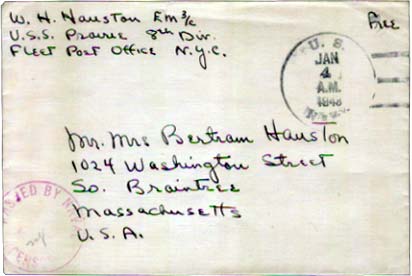 W. H. Hauston Em 3/c
U.S.S. Prairie 8th Div.
Fleet Post Office N.Y.C.
Free
U. S.
JAN
4
A.M.
Mr. Mrs Bertram Hauston
1024 Washington Street
So. Braintree
Massachusetts
U. S. A.
PASSED BY NAVAL
CENSOR